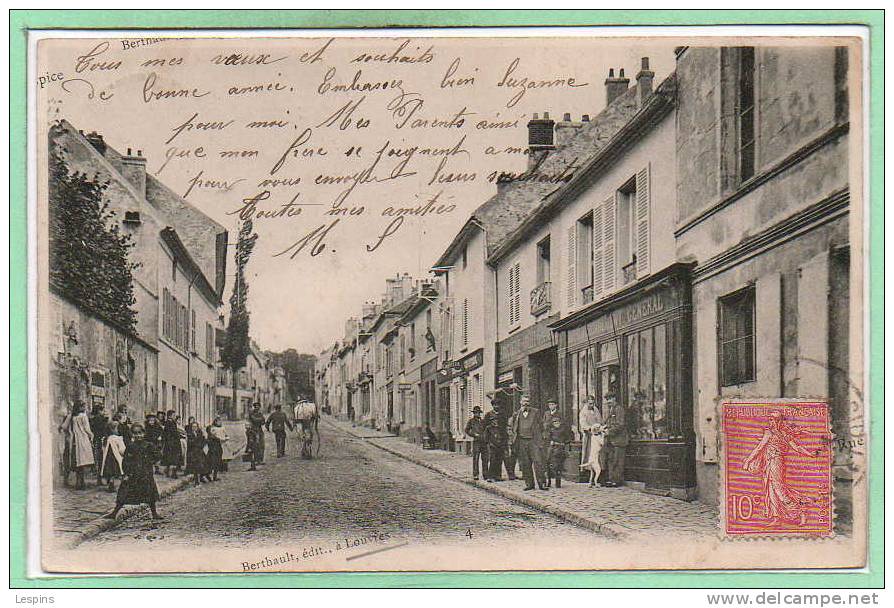 Berthault
spice
Tous mes vœux et souhaits
de bonne année. Embrassez bien Suzanne
pour moi. Mes Parents ainsi
que mon frère se joignent a moi
pour vous envoyer leurs souhaits
Toutes mes amitiés
M. S
GÉNÉRAL
REPUBLIQUE FRANCAISE
10c
POSTES
Rue
4
Berthault, édit., à Louvres
Lespins
www.delcampe.net